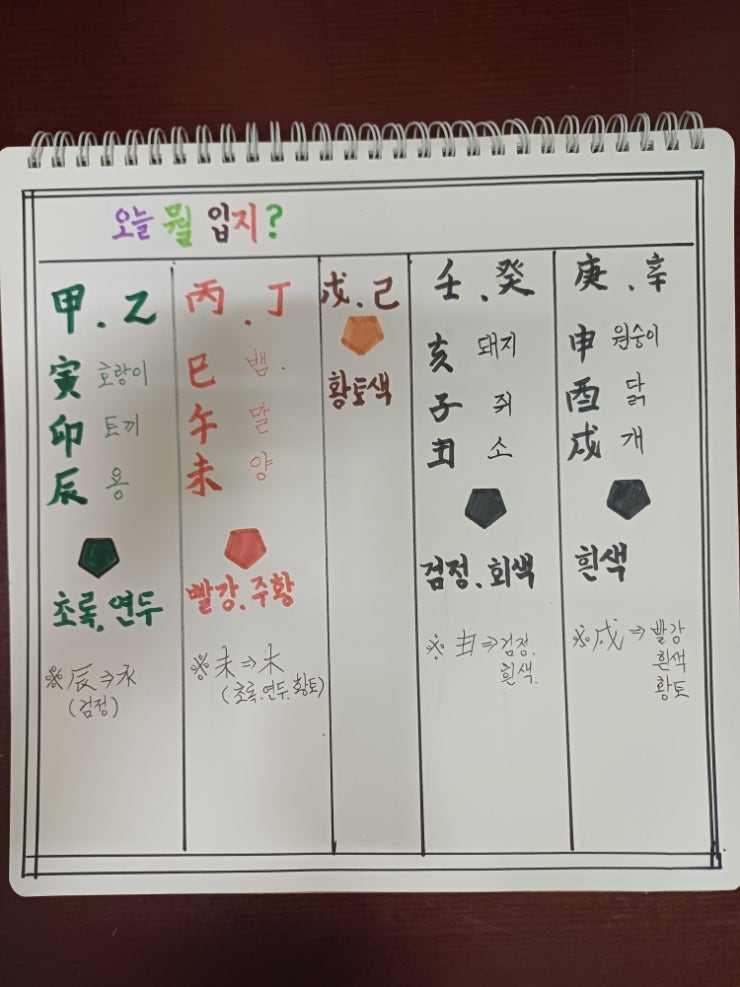 오늘 뭘 입지?
甲.乙
寅 호랑이
卯 토끼
辰 용
초록,연두
※辰⇒水
(검정)
丙.丁
巳 뱀.
午 말
未 양
빨강.주황
※未⇒木
(초록.연두.황토)
戊.己
황토색
壬.癸
亥 돼지
子 쥐
丑 소
검정.회색
※丑⇒검정.
흰색.
庚.辛
申 원숭이
酉 닭
戌 개
흰색
※戌⇒빨강
흰색
황토